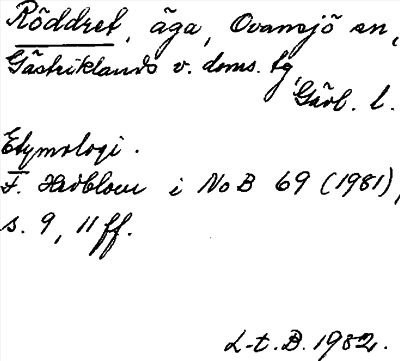 Röddret, äga, Ovansjö sn,
Gästriklands v. doms. tg,
Gävl. l.
Etymologi.
F. Hedblom i NoB 69 (1981),
s. 9, 11 ff.
L-t. B. 1982.